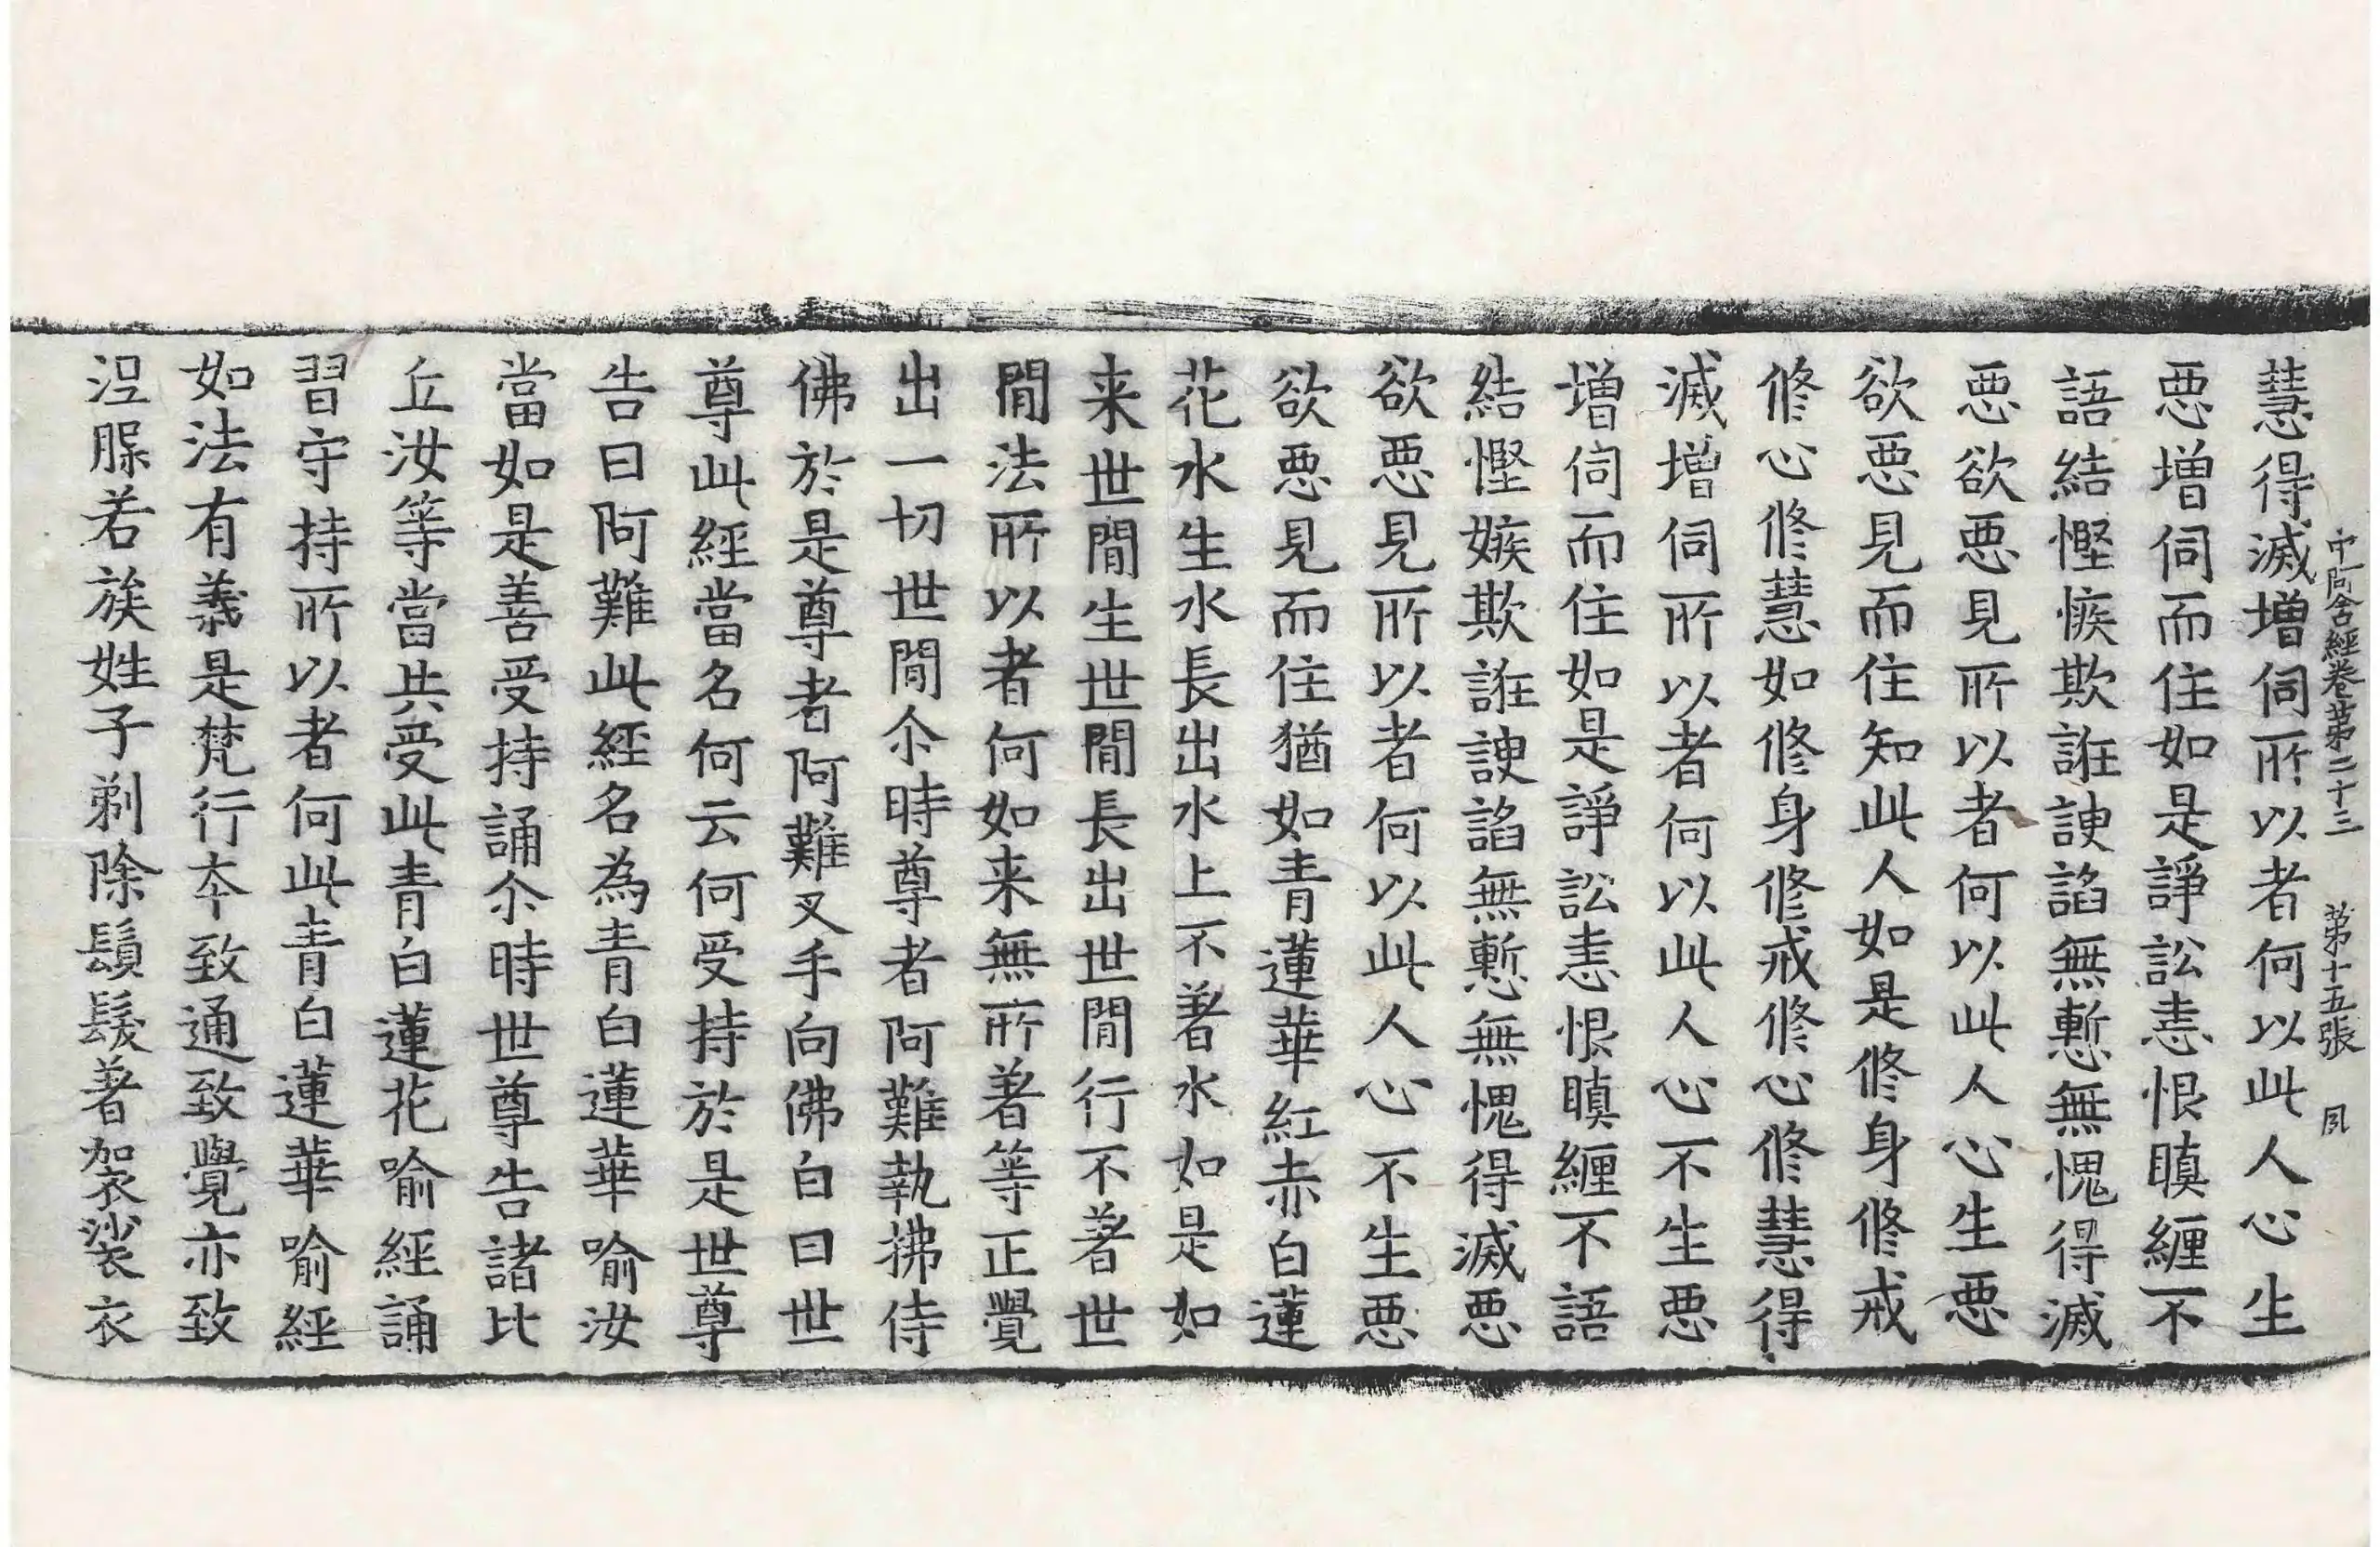 中阿含經卷第二十三　第十五張　夙
慧得滅增伺所以者何以此人心生
惡增伺而住如是諍訟恚恨瞋纏不
語結慳㛍欺誑諛諂無慙無愧得滅
惡欲惡見所以者何以此人心生惡
欲惡見而住知此人如是修身修戒
修心修慧如修身修戒修心修慧得
滅增伺所以者何以此人心不生惡
增伺而住如是諍訟恚恨瞋纏不語
結慳嫉欺誑諛諂無慙無愧得滅惡
欲惡見所以者何以此人心不生惡
欲惡見而住猶如青蓮華紅赤白蓮
花水生水長出水上不著水如是如
来世閒生世閒長出世閒行不著世
閒法所以者何如来無所著等正覺
出一切世閒尒時尊者阿難執拂侍
佛於是尊者阿難叉手向佛白曰世
尊此經當名何云何受持於是世尊
告曰阿難此經名為青白蓮華喻汝
當如是善受持誦尒時世尊告諸比
丘汝等當共受此青白蓮花喻經誦
習守持所以者何此青白蓮華喻經
如法有義是梵行夲致通致覺亦致
涅槃若族姓子剃除鬚髮著袈裟衣